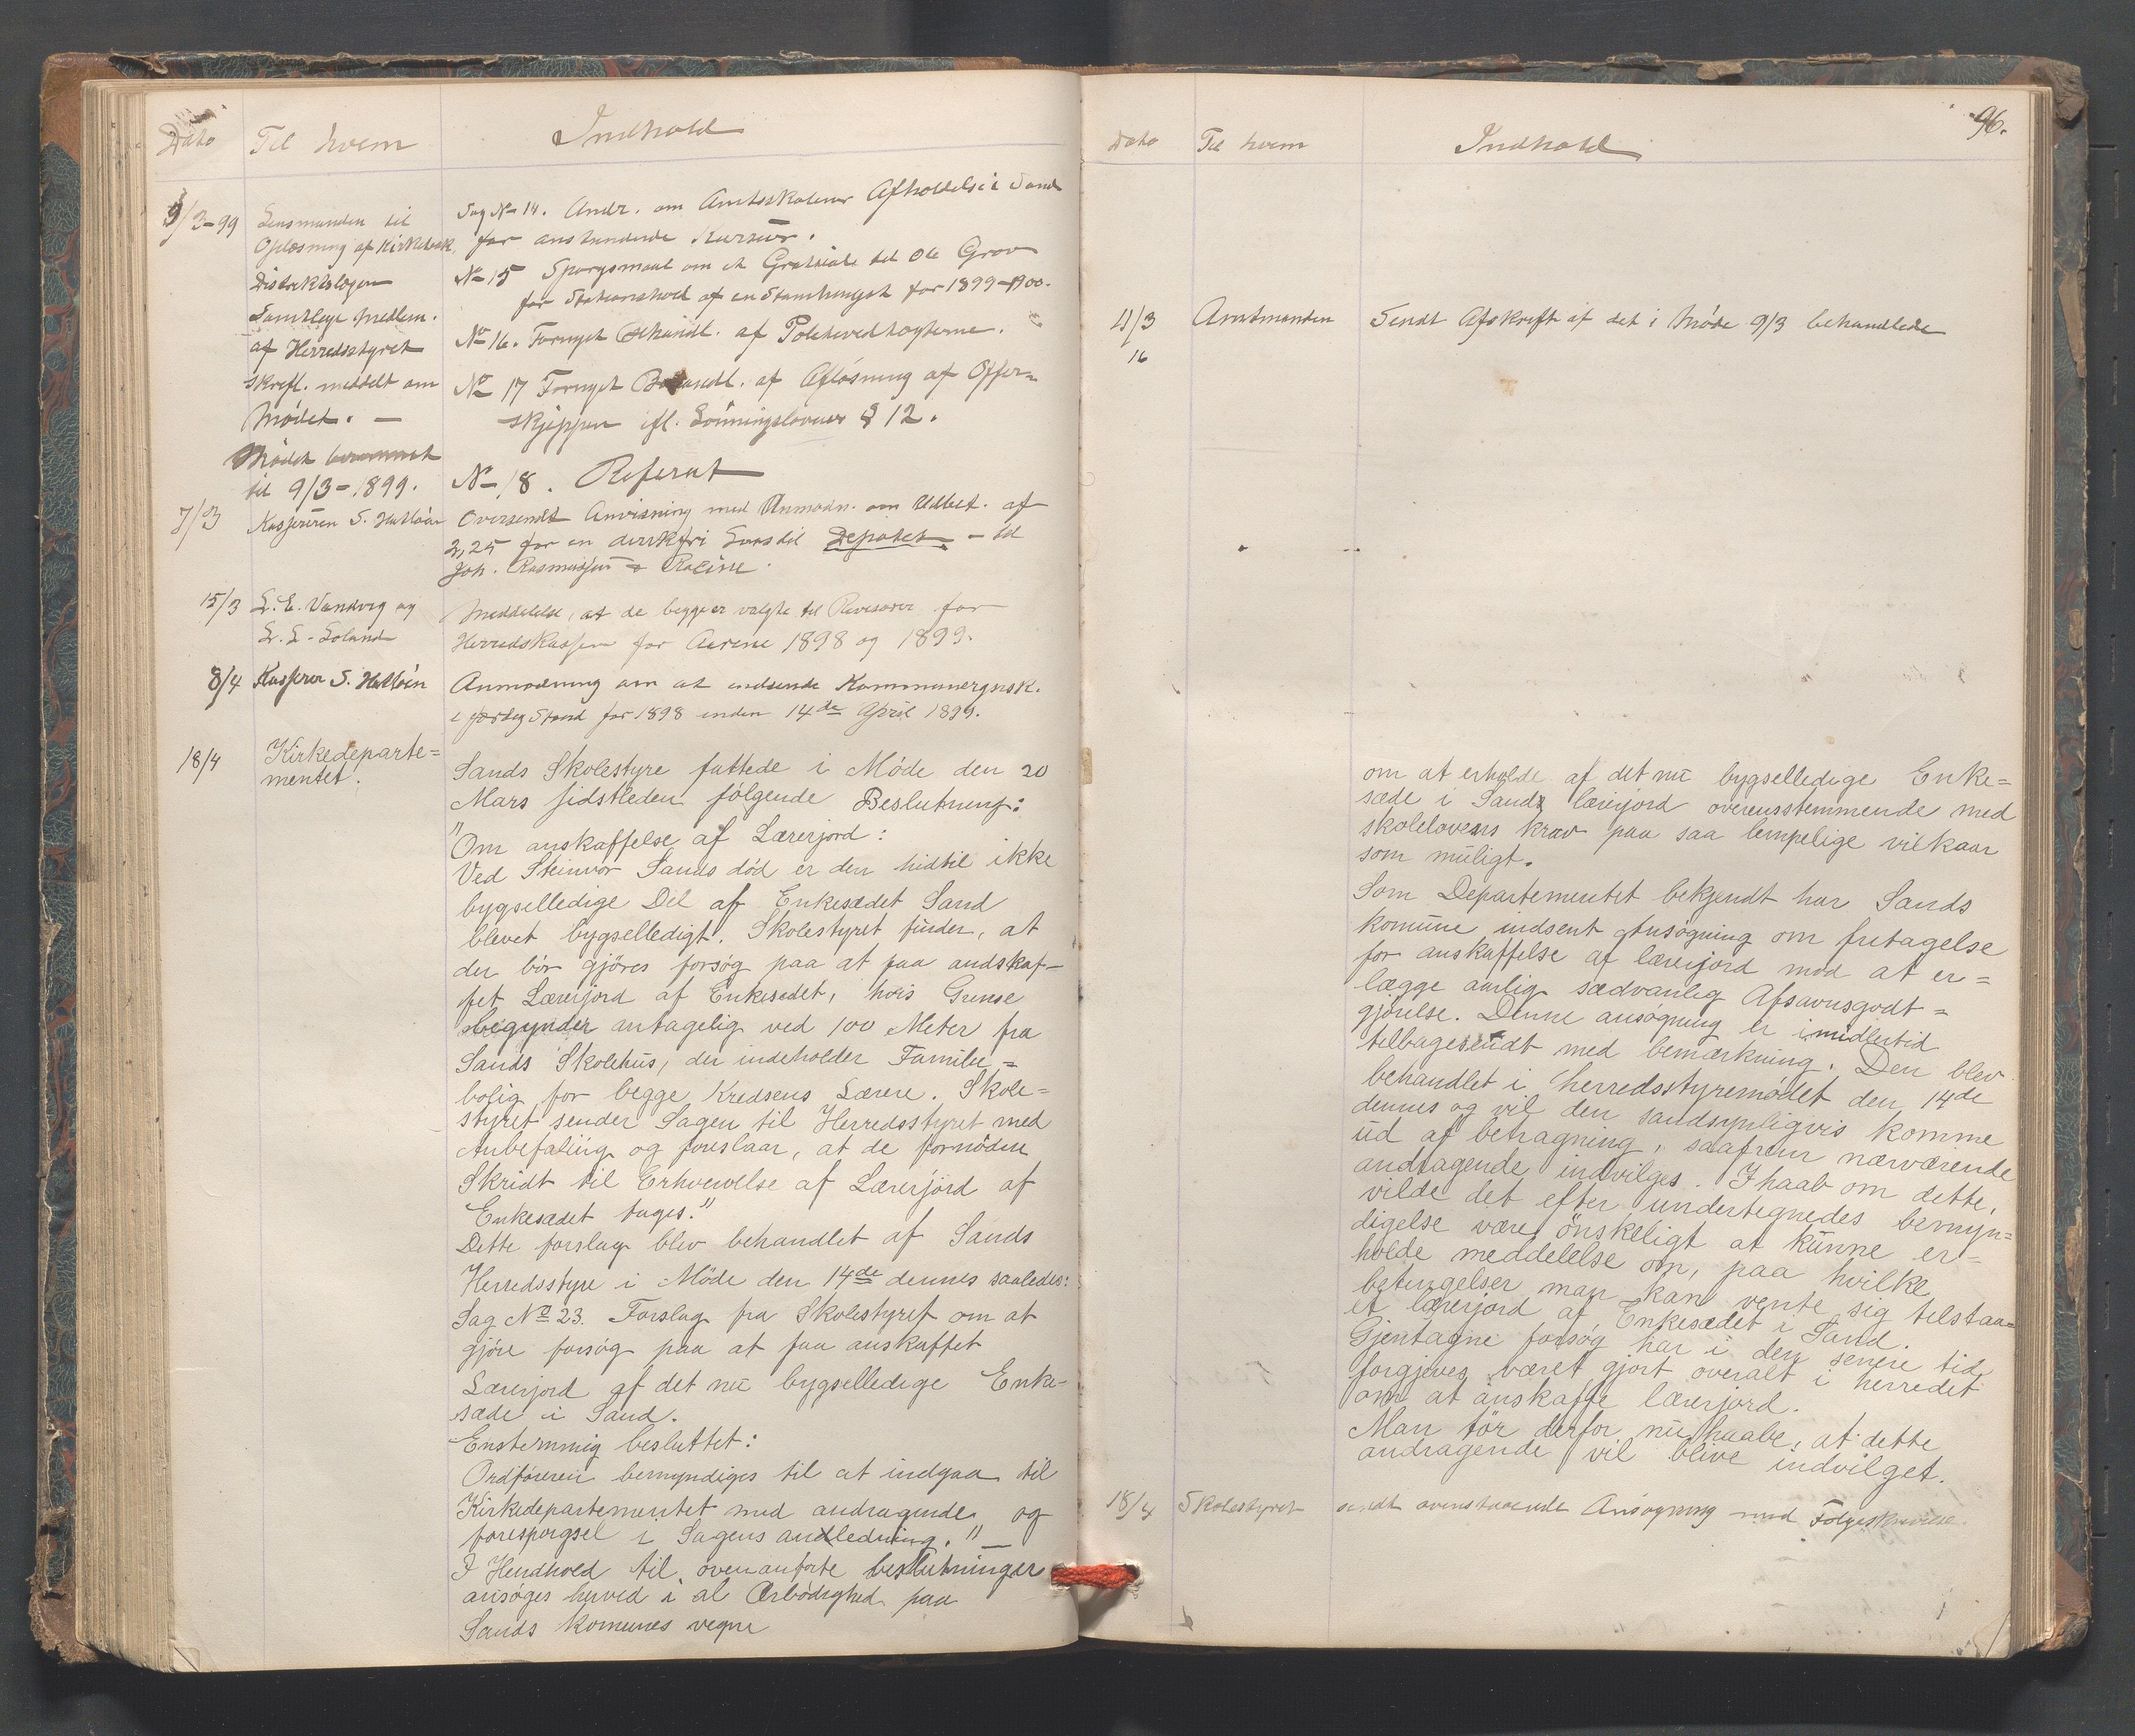 Dato Til hvem Indhold
9/3-99 Lensmanden til Sag No 14. Andr. om Amtsskolens Afholdelse i Sand
Oplæsning af Kirkebak. for anstundende Kursus.
Distriktslægen No 15 Spørgsmaal om et Gratiale til Ole Grov
for Stationshold af en Stamhingst for 1899-1900.
Samtlige Medlem.
af Herredsstyret No 16. Fornyet Behandl. af Politivedtægterne.
skrftl. meddelt om No 17 Fornyet Behandl. af Afløsning af Offer=
Mødet. — skjæppen ifl. Lønningslovens § 12.
Mødet berammet
til 9/3-1899. No 18. Referat
7/3 Kasjereren S. Hatløin Oversendt Anvisning med Anmodn. om Udbet. af
2,25 for en dirkfri Laas til Depotet — til
Joh. Rasmussen & Racine.
15/3 L. E. Vandvig og Meddelelse, at de begge er valgte til Revisorer for
L. L. Løland Herredskassen for Aarene 1898 og 1899.
8/4 Kasjerer S. Hatløin Anmodning om at indsende Kommuneregnsk.
i færdig Stand for 1898 inden 14de April 1899.
18/4 Kirkedeparte=
mentet. Sands Skolestyre fattede i Møde den 20
Mars sidstleden følgende Beslutning:
"Om anskaffelse af Lærerjord:
Ved Steinvør Sands død er den hidtil ikke
bygselledige Del af Enkesædet Sand
blevet bygselledigt. Skolestyret finder, at
der bør gjøres forsøg paa at faa andskaf-
fet Lærerjord af Enkesædet, hvis Grense
begynder antagelig ved 100 Meter fra
Sands Skolehus, der indeholder Familie=
bolig for begge Kredsens Lærere. Skole=
styret sender Sagen til Herredsstyret med
Anbefaling og foreslaar, at de fornødne
Skridt til Erhvervelse af Lærerjord af
Enkesædet tages."
Dette forslag blev behandlet af Sands
Herredsstyre i Møde den 14de dennes saaledes:
Sag No 23. Forslag fra Skolestyret om at
gjøre forsøg paa at faa anskaffet
Lærerjord af det nu bygselledige Enke-
sæde i Sand.
Enstemmig besluttet:
Ordføreren bemyndiges til at indgaa til
Kirkedepartementet med andragende og
forespørgsel i Sagens andledning." —
I Hendhold til ovenanførte beslutninger
ansøges herved i al Ærbødighed paa
Sands komunes vegne
96.
Dato Til hvem Indhold
11/3 Amtmanden Sendt Afskrift af det i Møde 9/3 behandlede
16
om at erholde af det nu bygselledige Enke=
sæde i Sands lærerjord overensstemmende med
skolelovens krav paa saa lempelige vilkaar
som muligt.
Som Departementet bekjendt har Sands
komune indsent Ansøgning om fritagelse
for anskaffelse af lærerjord mod at er=
lægge aarlig sædvanlig Afsavnsgodt=
gjørelse. Denne ansøgning er imidlertid
tilbagesendt med bemærkning. Den blev
behandlet i herredsstyremødet den 14de
dennes og vil den sandsynligvis komme
ud af betragning, saafremt nærværende
andragende indvilges. I haab om dette,
vilde det efter undertegnedes bemyn=
digelse være ønskeligt at kunne er=
holde meddelelse om, paa hvilke
betingelser man kan vente sig tilstaa=
et lærerjord af Enkesædet i Sand.
Gjentagne forsøg har i den senere tid
forgjeves været gjort overalt i herredet
om at anskaffe lærerjord.
Man tør derfor nu haabe, at dette
andragende vil blive indvilget.
18/4 Skolestyret sendt ovenstaaende Ansøgning med Følgeskrivelse.